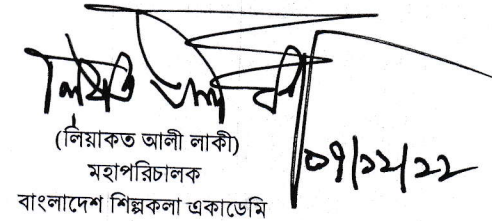 লিয়াকত আলী লাকী
(লিয়াকত আলী লাকী)
মহাপরিচালক
বাংলাদেশ শিল্পকলা একাডেমি
০৭/১২/২২